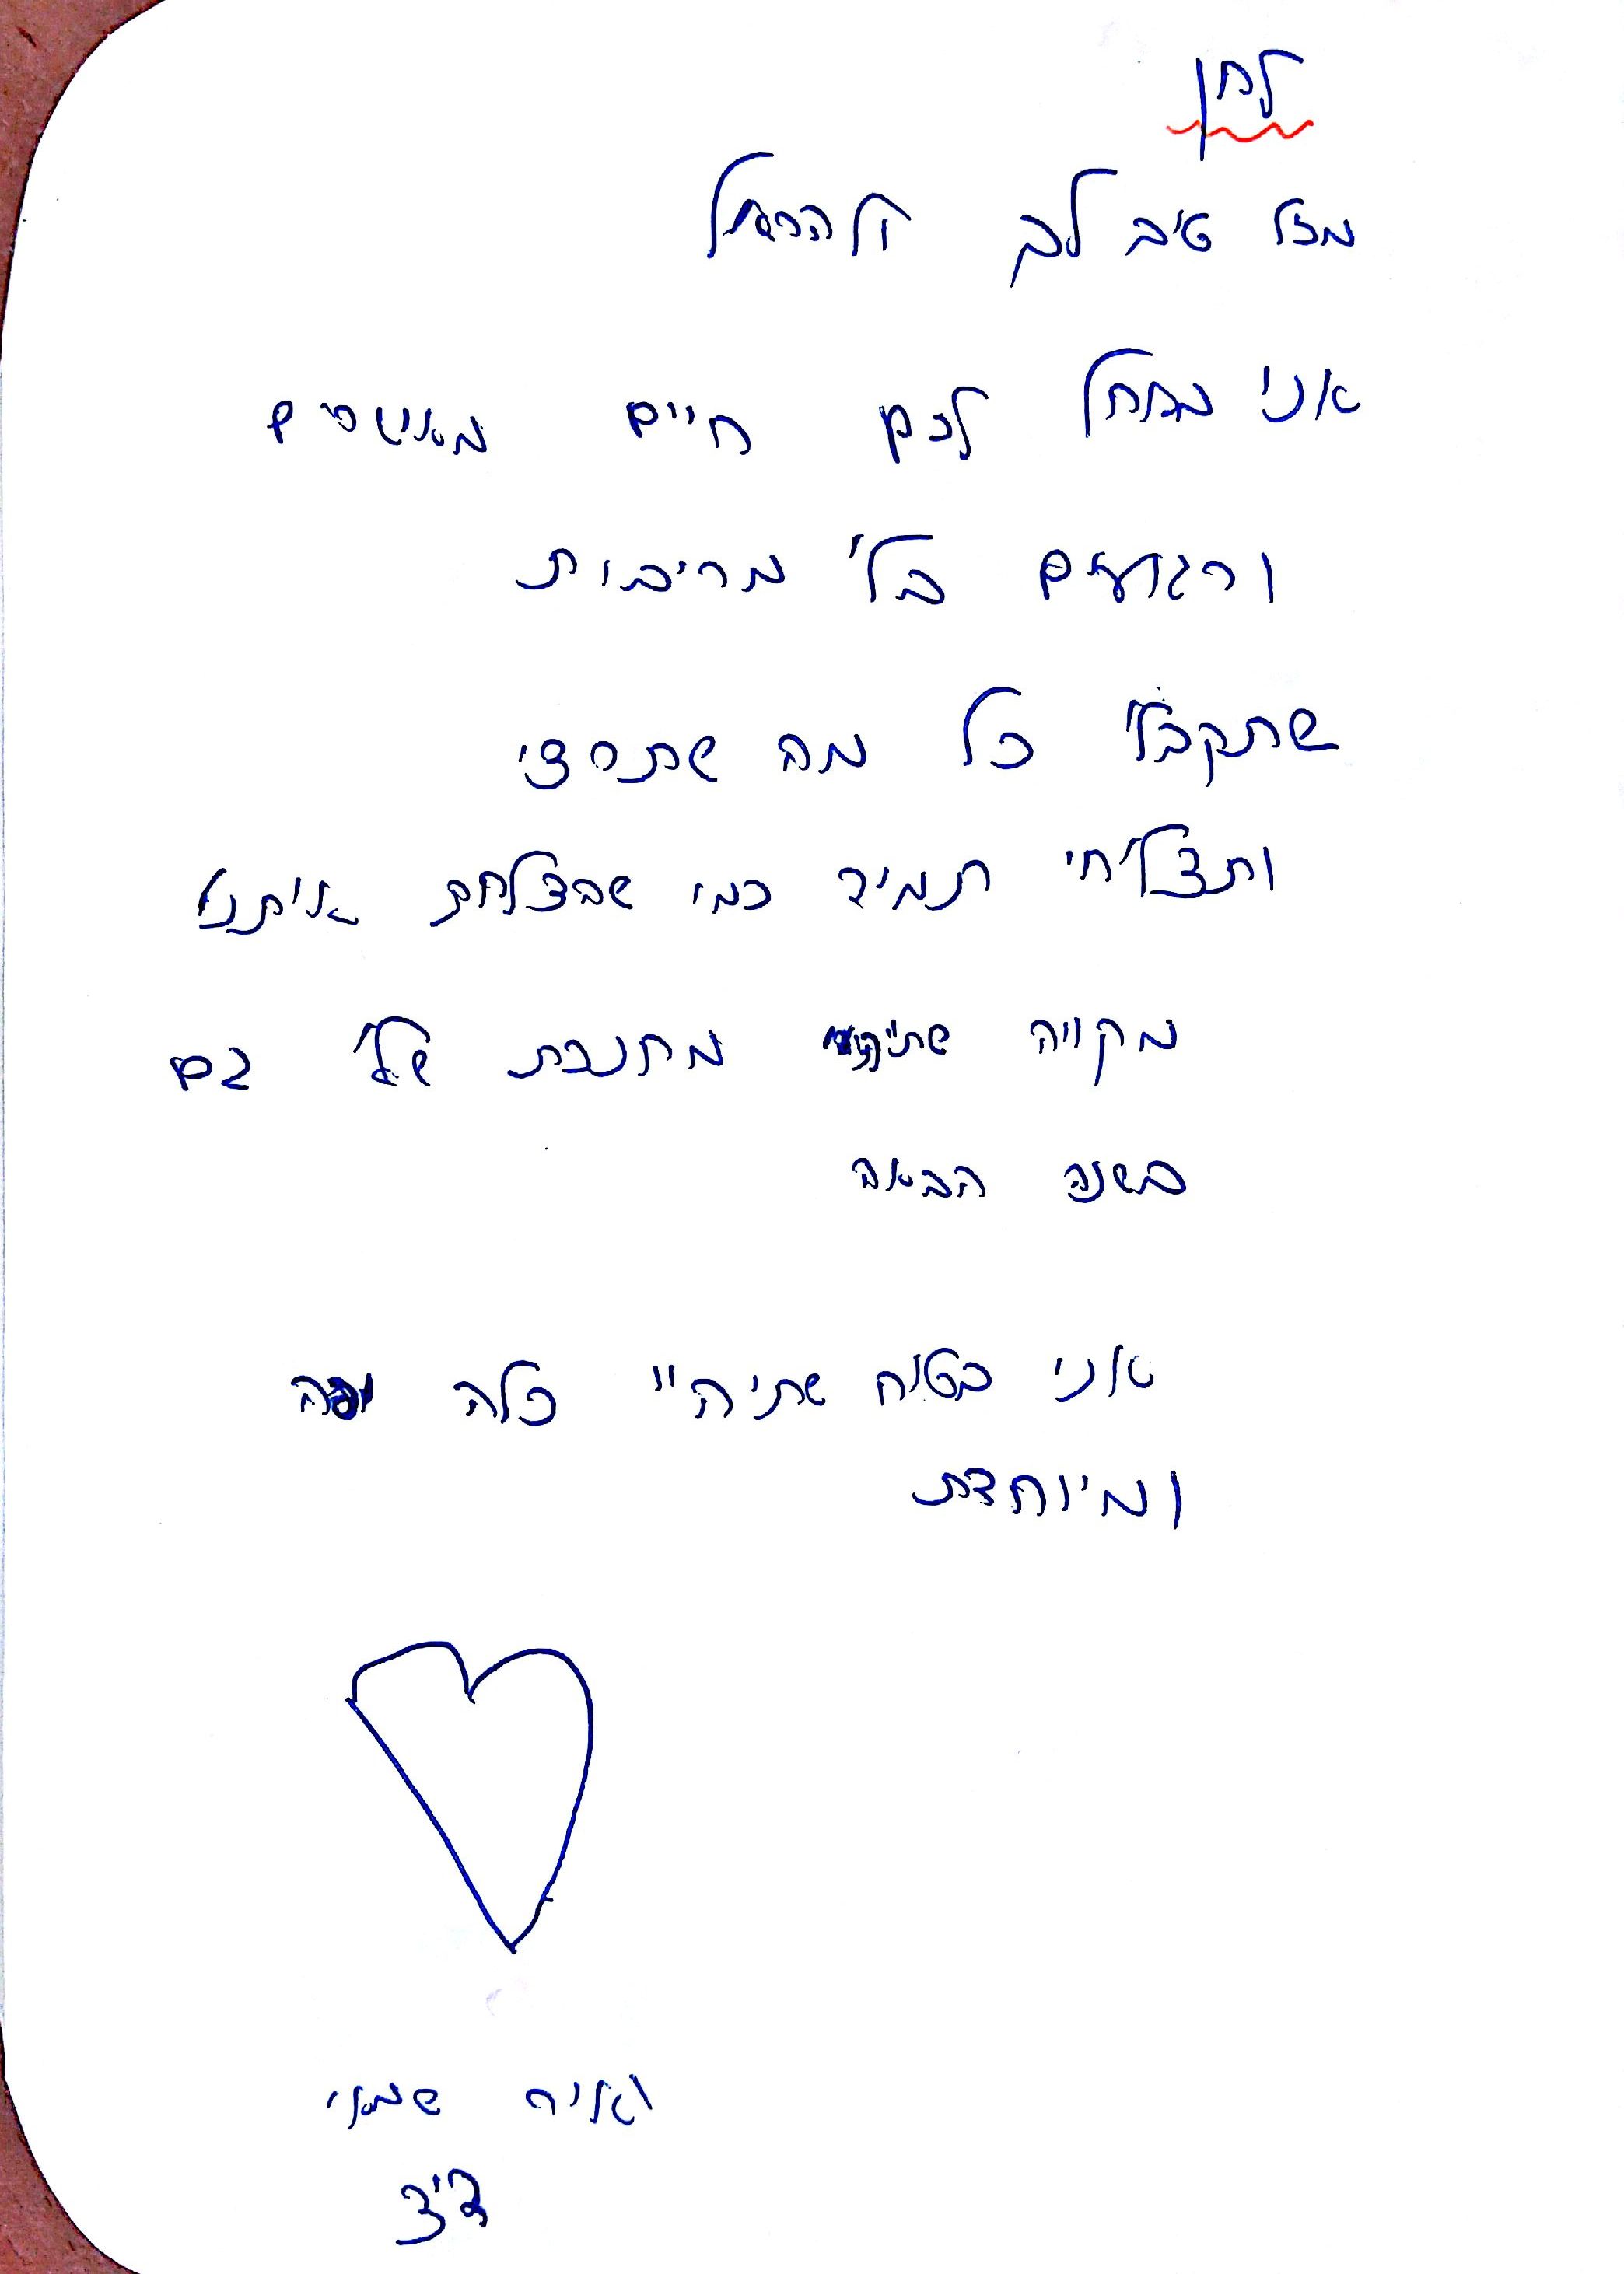 לחן
מזל טוב לך ול
אני מאחל לכם חיים מאושרים
ורגועים בלי מריבות
שתקבלי כל מה שתרצי
ותצליחי תמיד כמו שהצלחת איתנו
מקווה מחנכת שלי גם
בשנה הבאה
אני בטוח שתיהיי כלה יפה
ומיוחדת
יאיר שמאי
ד'3